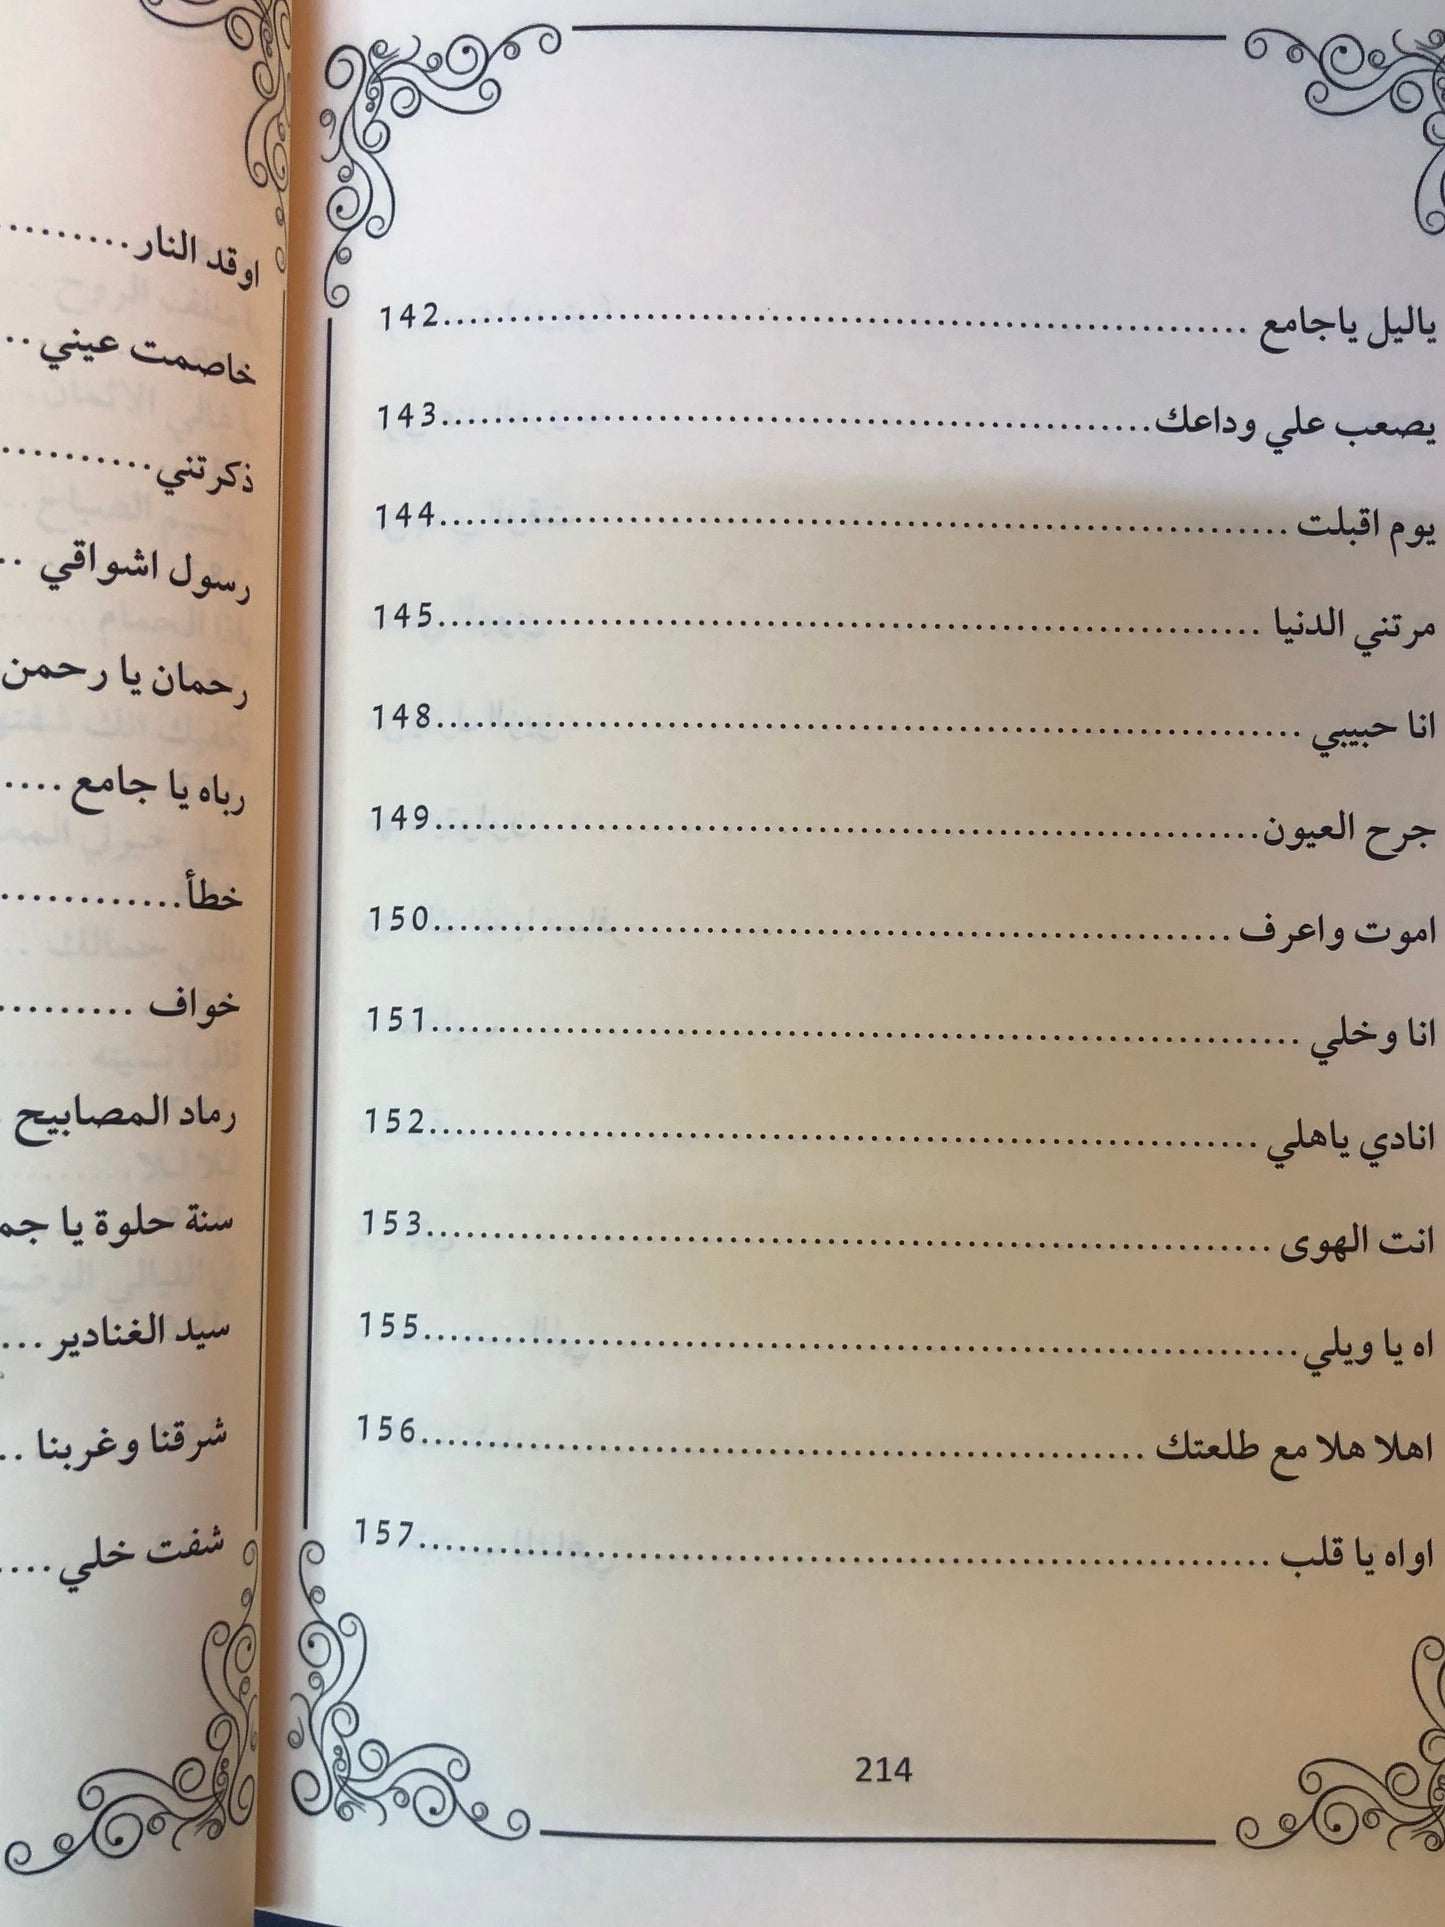 ياليل ياجامع ............................................................142
يصعب علي وداعك......................................................143
يوم اقبلت ................................................................144
مرتني الدنيا ..............................................................145
انا حبيبي .................................................................148
جرح العيون..............................................................149
اموت واعرف ............................................................150
انا وخلي .................................................................151
انادي ياهلي ..............................................................152
انت الهوى ................................................................153
اه يا ويلي.................................................................155
اهلا هلا مع طلعتك ......................................................156
اواه يا قلب ................................................................157
214
اوقد النار..........
خاصمت عيني ..
ذكرتني............
رسول اشواقي ..
رحمان يا رحمن
رباه يا جامع ....
خطأ..............
خواف ..........
رماد المصابيح .
سنة حلوة يا
سيد الغنادير ...
شرقنا وغربنا ..
شفت خلي ....